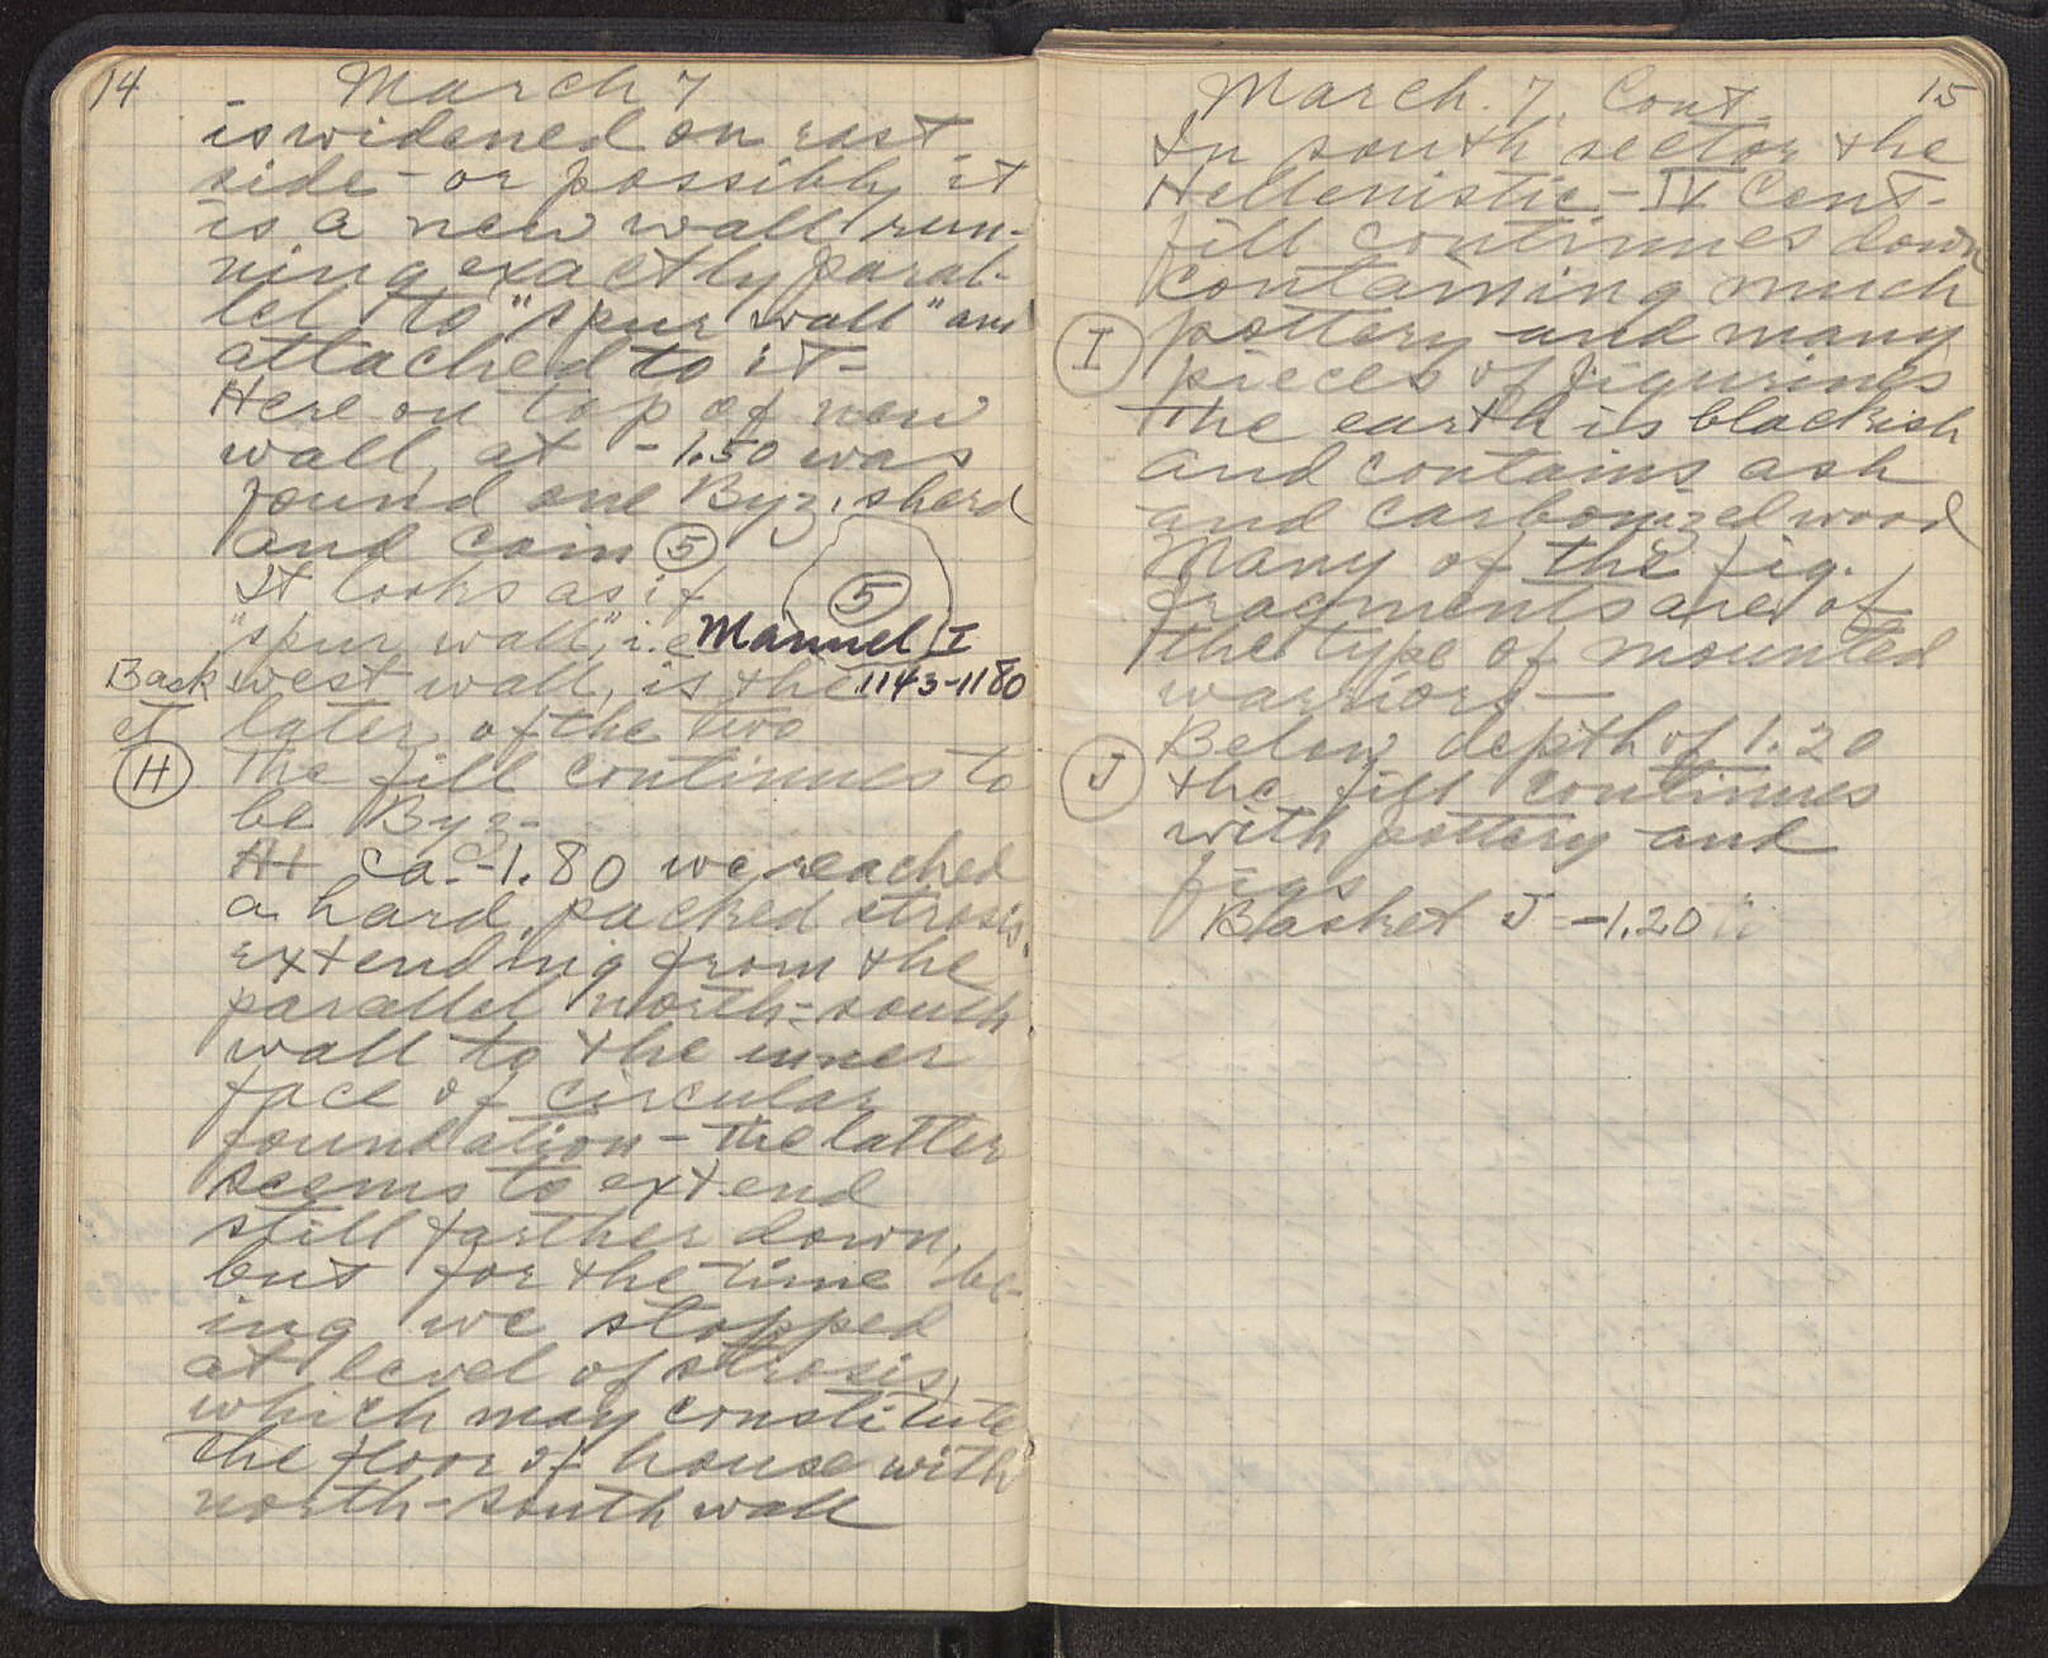 14
March 7
is widened on east
side - or possibly it
is a new wall run-
ning exactly paral-
lel to "spur wall" and
attached to it -
Here on top of new
wall, at -1.50 was
found one Byz. sherd
and coin (5)
(5)
Manuel I
1143-1180
It looks as if
"spur wall", i.e.
west wall, is the
later of the two
Bask
et
(H)
The fill continues to
be Byz -
At ca. -1.80 we reached
a hard packed strosis,
extending from the
parallel north-south
wall to the inner
face of circular
foundation - the latter
seems to extend
still farther down,
but for the time be-
ing we stopped
at level of strosis,
which may constitute
the floor of house with
north-south wall
15
March. 7. Cont.
In south sector the
Hellenistic - IV Cent -
fill continues down
containing much
(I)
pottery and many
pieces of figurines
The earth is blackish
and contains ash
and carbonized wood
Many of the fig.
fragments are of
the type of mounted
warriors -
(J)
Below depth of 1.20
the fill continues
with pottery and
figs
Basket J -1.20